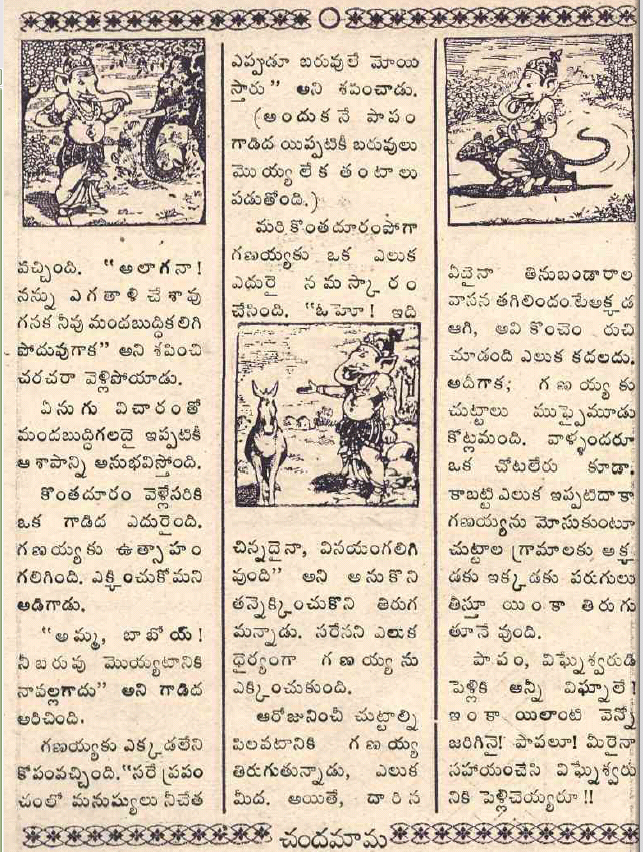 వచ్చింది. “అలాగనా!
నన్ను ఎగతాళి చేశావు
గనక నీవు మందబుద్ధికలిగి
పోదువుగాక” అని శపించి
చరచరా వెళ్లిపోయాడు.
ఏనుగు విచారంతో
మందబుద్ధిగలదై ఇప్పటికీ
ఆ శాపాన్ని అనుభవిస్తోంది.
కొంతదూరం వెళ్లేసరికి
ఒక గాడిద ఎదురైంది.
గణయ్యకు ఉత్సాహం
గలిగింది. ఎక్కించుకోమని
అడిగాడు.
“అమ్మ, బాబోయ్!
నీ బరువు మొయ్యటానికి
నావల్లగాదు” అని గాడిద
అరిచింది.
గణయ్యకు ఎక్కడలేని
కోపంవచ్చింది. “సరే ప్రపం
చంలో మనుష్యులు నీచేత
ఎప్పుడూ బరువులే మోయి
స్తారు” అని శపించాడు.
(అందుకనే పాపం
గాడిద యిప్పటికీ బరువులు
మొయ్యలేక తంటాలు
పడుతోంది.)
మరి కొంతదూరంపోగా
గణయ్యకు ఒక ఎలుక
ఎదురై నమస్కారం
చేసింది. “ఓహో! ఇది
చిన్నదైనా, వినయంగలిగి
వుంది” అని అనుకొని
తన్నెక్కించుకొని తిరుగ
మన్నాడు. సరేనని ఎలుక
ధైర్యంగా గణయ్యను
ఎక్కించుకుంది.
ఆరోజునించీ చుట్టాల్ని
పిలవటానికి గణయ్య
తిరుగుతున్నాడు, ఎలుక
మీద. అయితే, దారిన
ఏవైనా తినుబండారాల
వాసన తగిలిందంటేఅక్కడ
ఆగి, అవి కొంచెం రుచి
చూడంది ఎలుక కదలదు.
అదీగాక; గణయ్యకు
చుట్టాలు ముప్పైమూడు
కోట్లమంది. వాళ్ళందరూ
ఒక చోటలేరు కూడా.
కాబట్టి ఎలుక ఇప్పటిదాకా
గణయ్యను మోసుకుంటూ
చుట్టాల గ్రామాలకు అక్క
డకు ఇక్కడకు పరుగులు
తీస్తూ యింకా తిరుగు
తూనే వుంది.
పాపం, విఘ్నేశ్వరుడి
పెళ్లికి అన్నీ విఘ్నాలే!
ఇంకా యిలాంటి వెన్నో
జరిగినై! పాపలూ! మీరైనా
సహాయంచేసి విఘ్నేశ్వరు
నికి పెళ్లిచెయ్యరూ!!
చందమామ